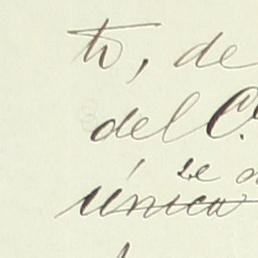 to, de
del C
se
única